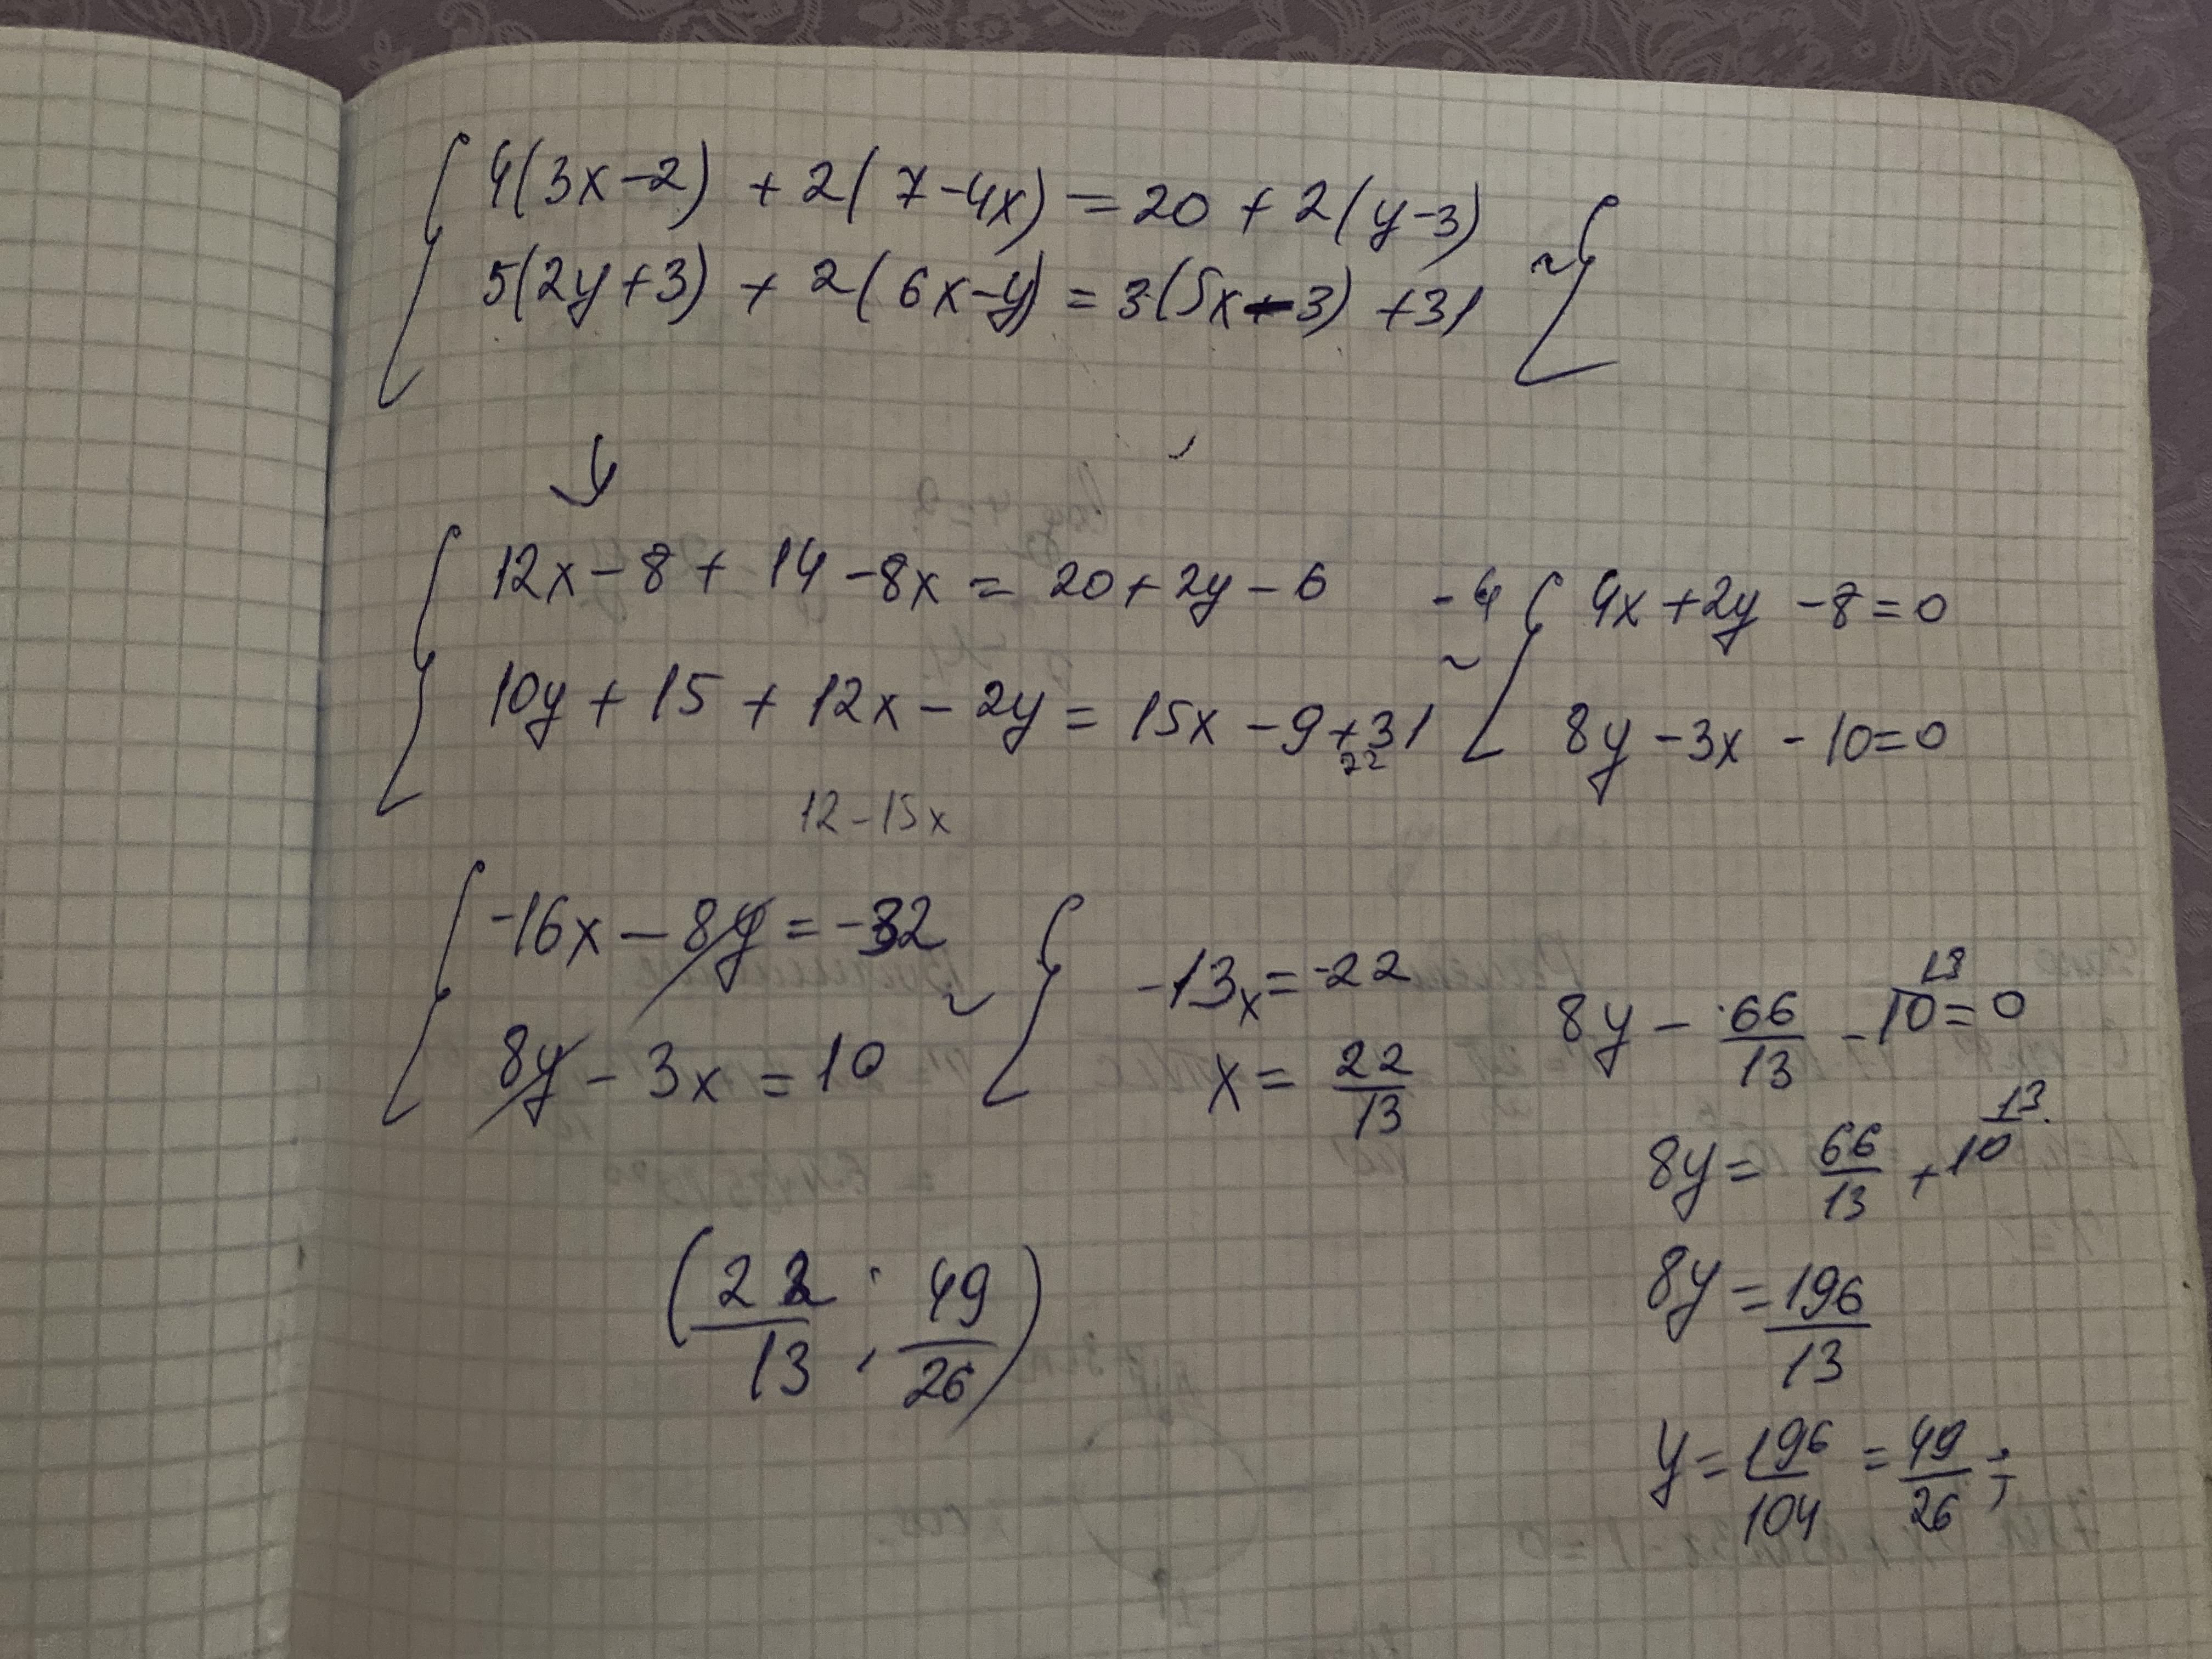 4(3x-2) + 2(7-4x) = 20 + 2(y-3)
5(2y+3) + 2(6x-y) = 3(5x-3) +31 ~
12x - 8 + 14 - 8x = 20 + 2y - 6
10y + 15 + 12x - 2y = 15x - 9 + 31 ~
22
12-15x
-4
4x + 2y - 8 = 0
8y - 3x - 10 = 0
-16x - 8y = -32
8y - 3x = 10 ~
-13x = -22
x = 22/13
8y - 66/13 - 10 = 0
13
8y = 66/13 + 10
13
8y = 196/13
y = 196/104 = 49/26 ;
(22/13 ; 49/26)